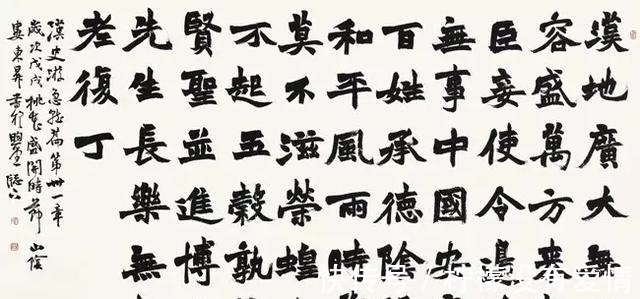 漢地廣大無
容盛萬方来
臣妾使令
無事中國安
百姓承德陰
和平風雨時
莫不滋榮蝗
不起五穀孰
賢聖並進博
先生長樂無
老復丁
漢史游急就篇第卅一章
歲次戊戌桃花盛開時節山陰
婁東昇書於
快传号 / 柠檬没有爱情